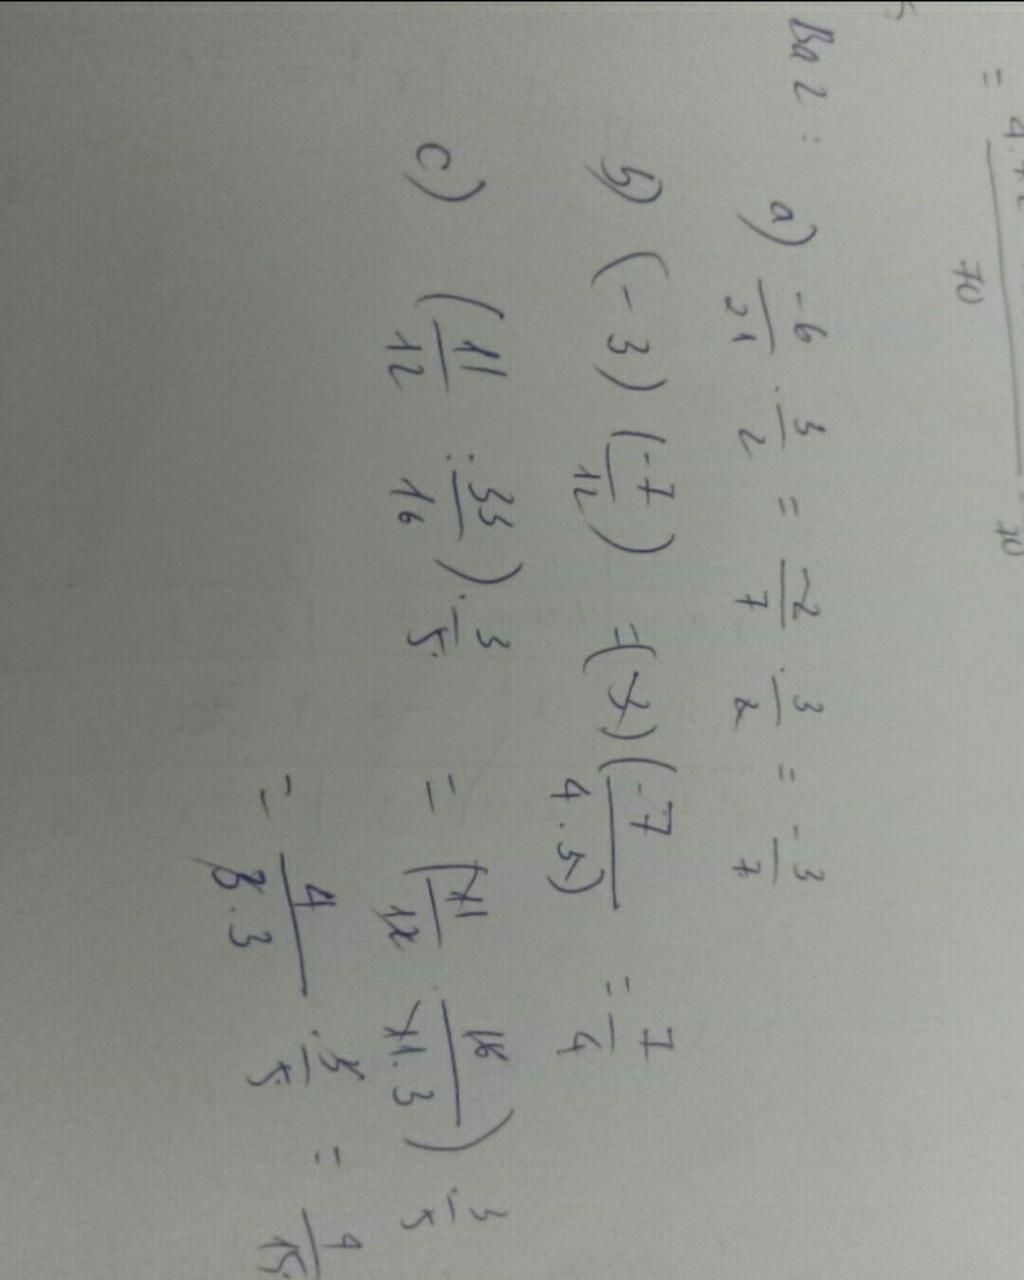 = 4.
70
70
Bà 2 :
a) -6/21 . 3/2 = -2/7 . 3/2 = -3/7
b) (-3) (-7/12) = (-3) (-7/4.3) = 7/4
c) (11/12 : 33/16) . 3/5 = (11/12 . 16/11.3) . 3/5
= 4/3.3 . 3/5 = 4/15